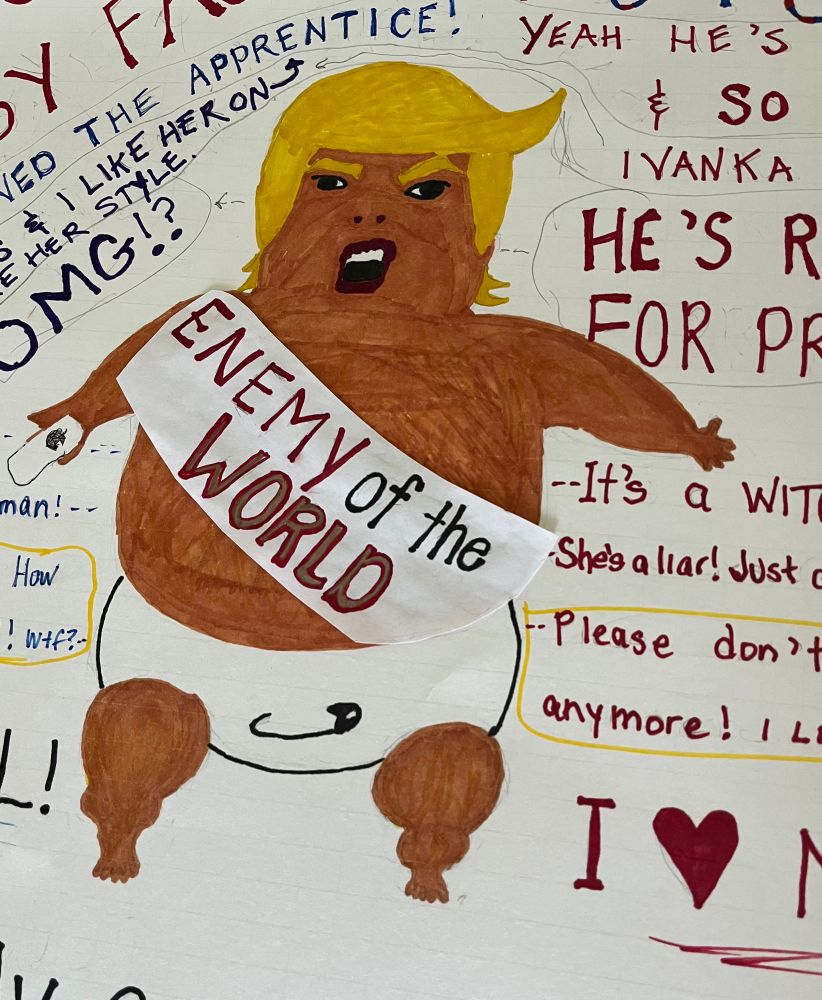 YEAH HE'S
VED THE APPRENTICE!
& I LIKE HER ON
HER STYLE.
OMG!?
& SO
IVANKA
HE'S R
FOR PR
ENEMY of the
WORLD
man!--
How
! Wtf?-
--It's a WITC
-She's a liar! Just
--Please don't
anymore! I L
L!
I ♥